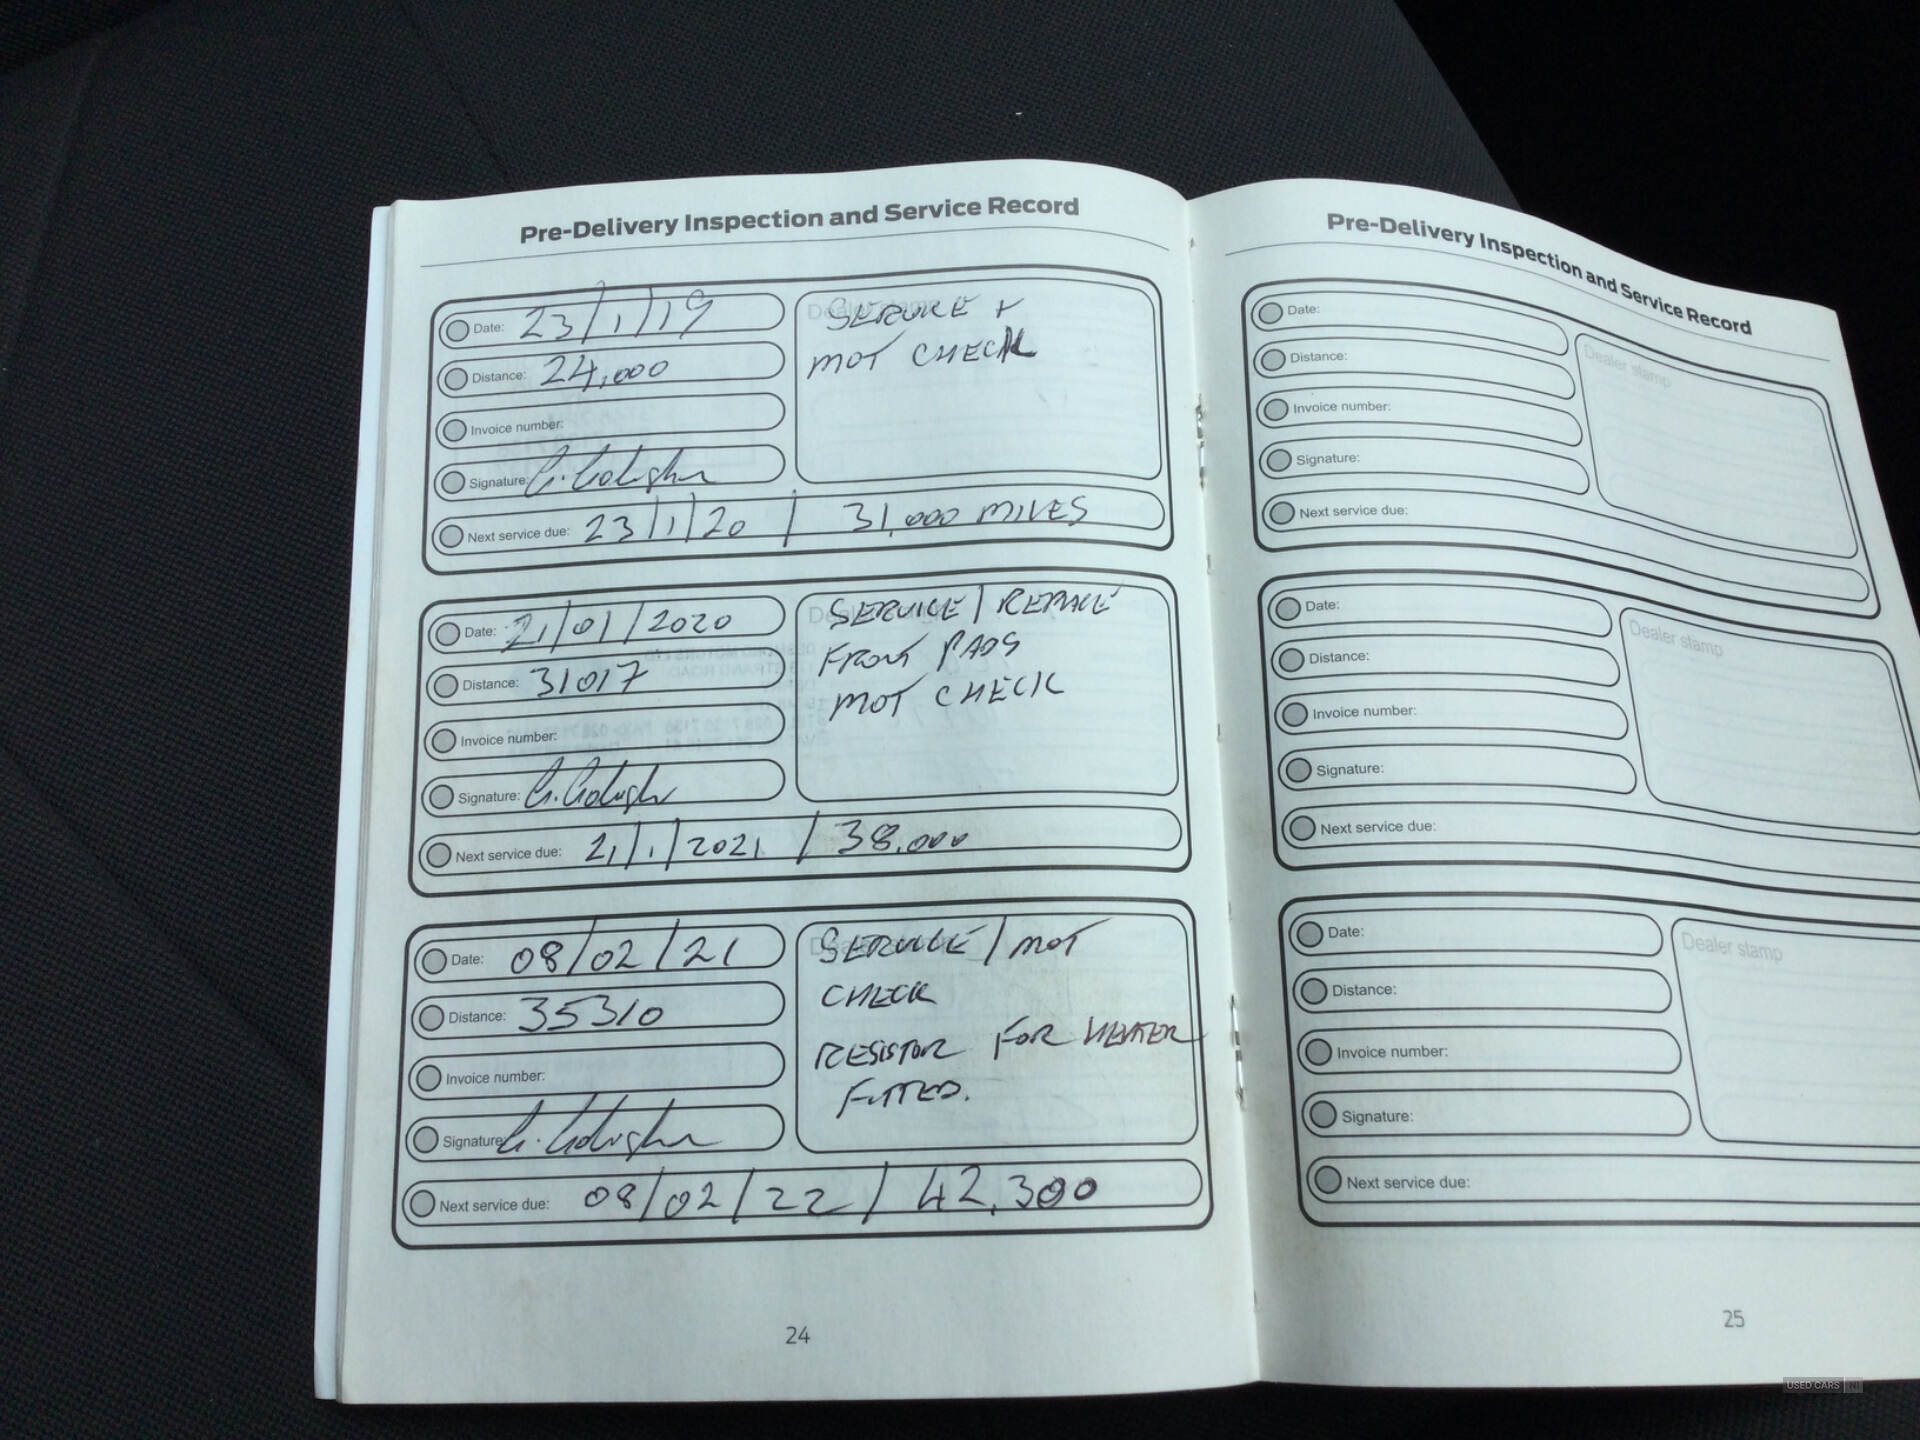 Pre-Delivery Inspection and Service Record
Date: 23/1/19
Dealer stamp
SERVICE +
MOT CHECK
Distance: 24,000
Invoice number:
Signature:
Next service due: 23/1/20 / 31,000 MILES
Date: 21/01/2020
SERVICE / REPLACE
FRONT PADS
MOT CHECK
Distance: 31017
Invoice number:
Signature:
Next service due: 21/1/2021 / 38,000
Date: 08/02/21
SERVICE / MOT
CHECK
RESISTOR FOR HEATER
FITTED.
Distance: 35310
Invoice number:
Signature:
Next service due: 08/02/22 / 42,300
24
Pre-Delivery Inspection and Service Record
Date:
Distance:
Invoice number:
Signature:
Next service due:
Dealer stamp
Date:
Distance:
Invoice number:
Signature:
Next service due:
Dealer stamp
Date:
Distance:
Invoice number:
Signature:
Next service due:
Dealer stamp
25
USED CARS NI